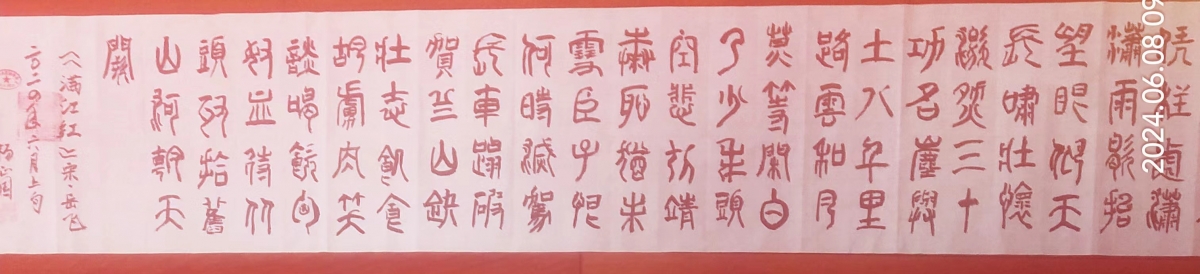 處瀟
瀟雨歇抬
望眼仰天
長嘯壯懷
激烈三十
功名塵與
土八千里
路雲和月
莫等閑白
了少年頭
空悲切靖
康恥猶未
雪臣子恨
何時滅駕
長車踏破
賀兰山缺
壯志飢食
胡虜肉笑
談渴飲匈
奴血待从
頭收拾舊
山河朝天
闕
《满江红》宋·岳飞
六月上旬
2024.06.08 09